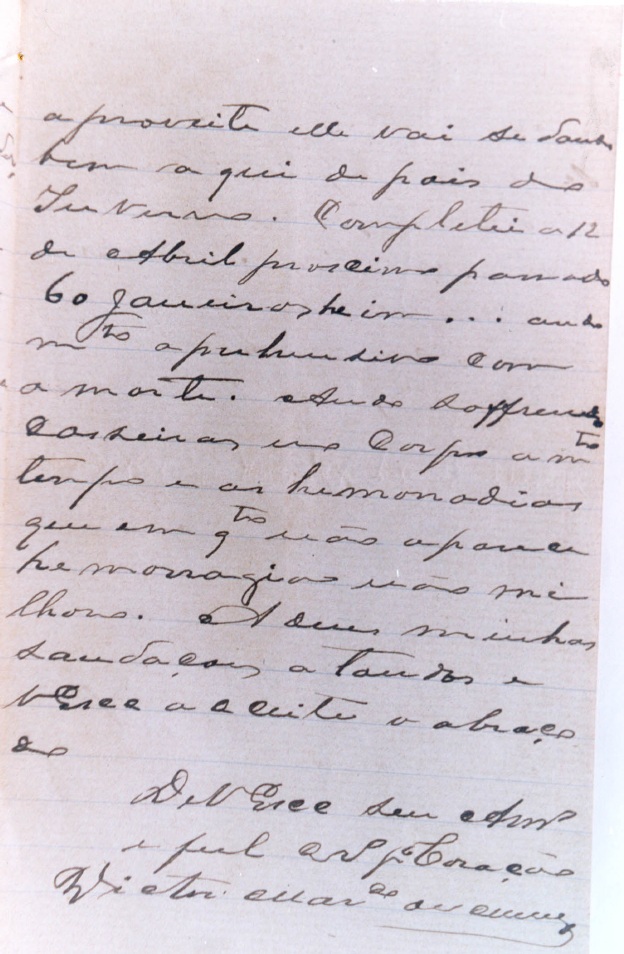 a proveite elle vai se dando
bem a qui de pois do
Inverno. Completei a 12
de Abril proscimo passado
60 Janeiros hein ... ando
mto aprehensivo com
a morte. Ando soffrendo
cosseiras no corpo a mto
tempo e as hemorroidias
que em qto não aparece
hemorragias não mi
lhoro. A deus minhas
saudações a toudos e
VExce acceite o abraço
do
De VExce seu Amo
e Coração
Victor